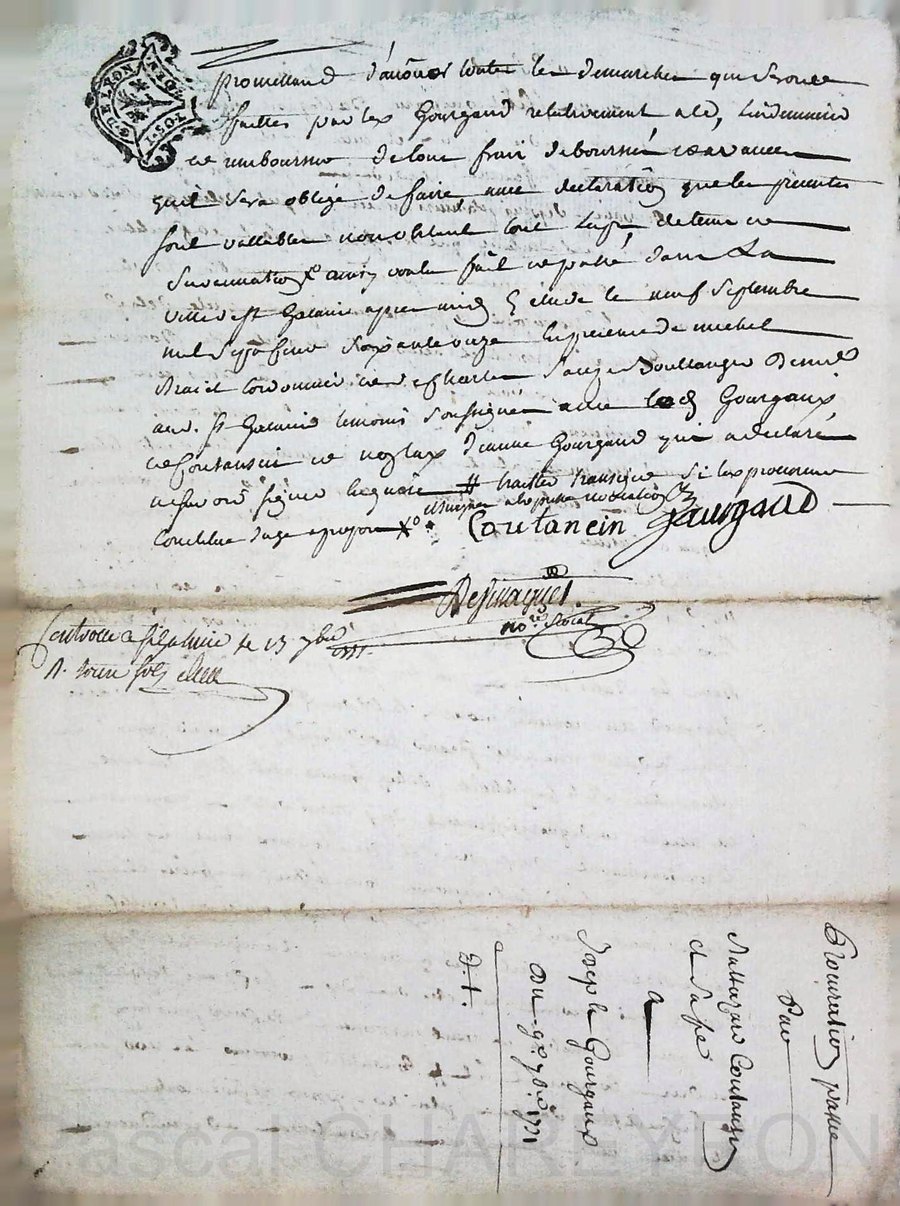 G. DE LYON
promettand d'avouer toutes les demarches qui seront
faittes par lex Gourgaud relativement a ce, lindemniser
et rembourser de tous frais deboursés et avances
quil sera obligé de faire, avec declaration que les presentes
sont vallables nonobstant tout laps de tems et
surannation ainsy voulu fait et passé dans La
ville de st Galmier apres midy Etude le neuf Septembre
mil sept cent soixante onze En presence de michel
cordonnier et de Charles Boullanger Demt
aud. st Galmier temoins soussignés avec led Gourgaux
et Coutansin et non lax jeanne Gourgaud qui a declaré
ne scavoir signer traitter transiger si lex procureur
constitué juge a propos
Coutancin Gourgaud
Desmaques
no.re Royal
Controllé a st galmier le 13 7bre 1771
R. treize sols
Procuration passée
Par
Baltazard Coutansin
et sa fe
a
Joseph Gourgaux
Du 9e 7bre 1771
Pascal CHAREYRON